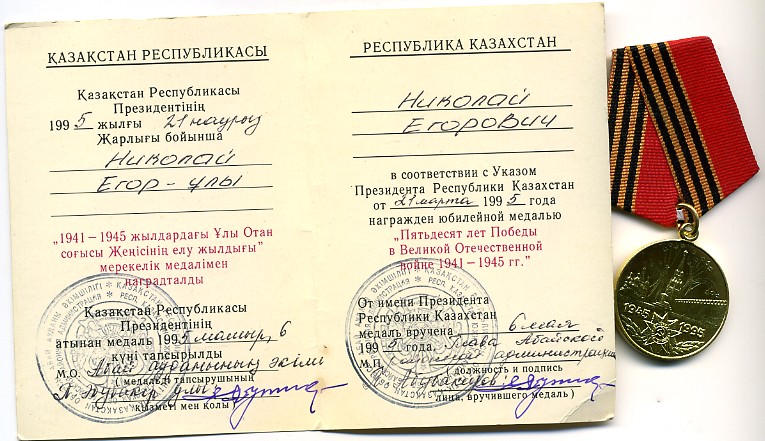 ҚАЗАҚСТАН РЕСПУБЛИКАСЫ
Қазақстан Республикасы
Президентінің
1995 жылғы 21 наурыз
Жарлығы бойынша
Николай
Егор-ұлы
„1941 — 1945 жылдардағы Ұлы Отан
соғысы Жеңісінің елу жылдығы”
мерекелік медалімен
наградталды
Қазақстан Республикасы
Президентінің
атынан медаль 1995 мамыр, 6
күні тапсырылды
М.О. Абай ауданының әкімі
(медальді тапсырушының
қызметі мен қолы)
РЕСПУБЛИКА КАЗАХСТАН
Николай
Егорович
в соответствии с Указом
Президента Республики Казахстан
от 21 марта 1995 года
награжден юбилейной медалью
„Пятьдесят лет Победы
в Великой Отечественной
войне 1941—1945 гг.”
От имени Президента
Республики Казахстан
медаль вручена 6 мая
1995 года. Глава Абайской
М.П. администрации
(должность и подпись
лица, вручившего медаль)
1945 1995